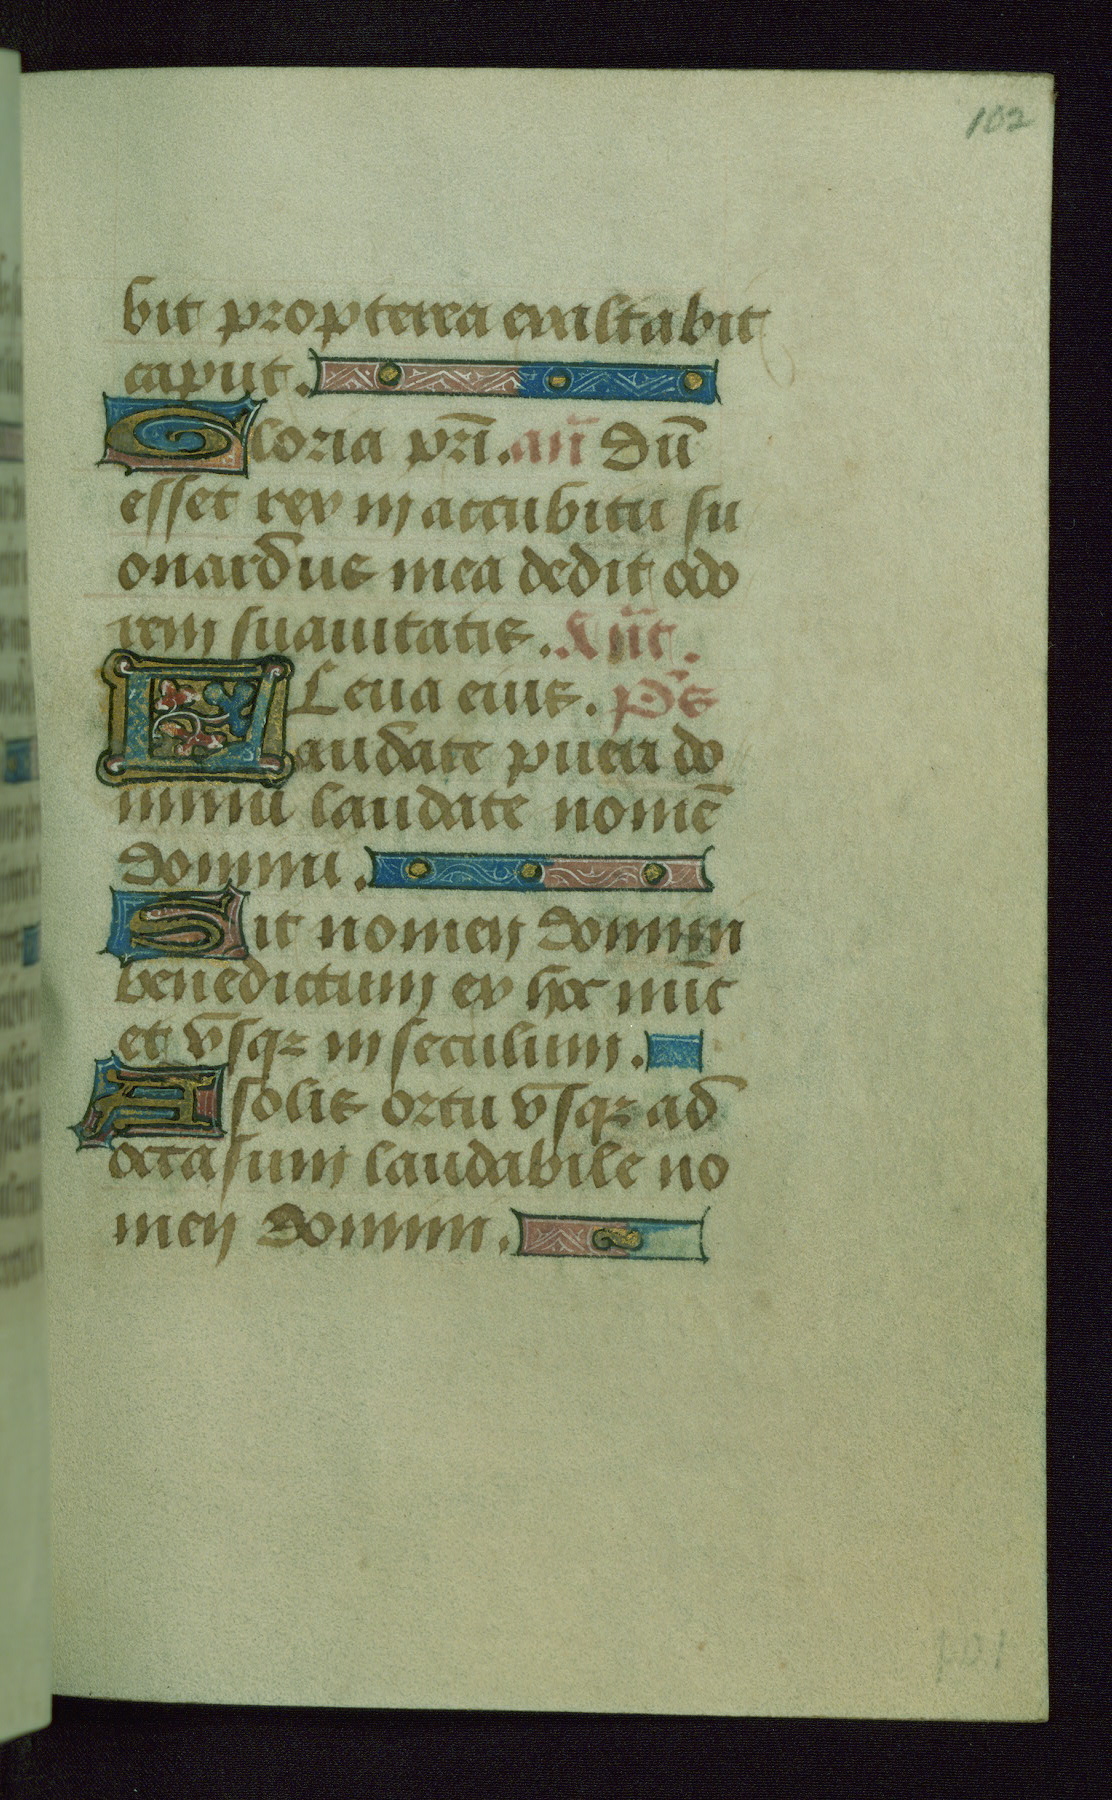 102
bit propterea exaltabit
caput.
Gloria pri. an̄ Dū
esset rex in accubitu su
o nardus mea dedit odo
rem suauitatis. ān̄t.
Leua eius. p̄s
Laudate pueri do
minū laudate nomē
domini.
Sit nomen domini
benedictum ex hoc nūc
et vsqȝ in seculum.
A solis ortu vsqȝ ad
occasum laudabile no
men domini.
101